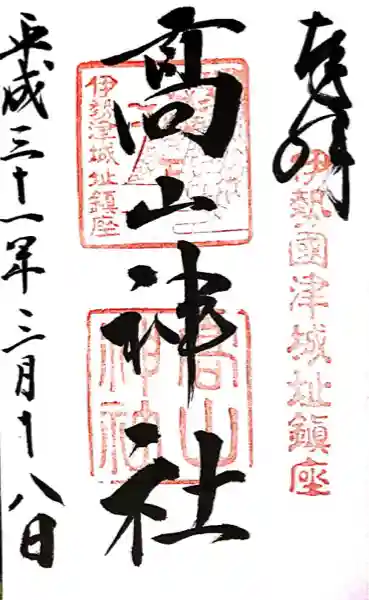 奉拝
伊勢國津城址鎮座
高山神社
伊勢津城址鎮座
高山神社
平成三十一年三月十八日